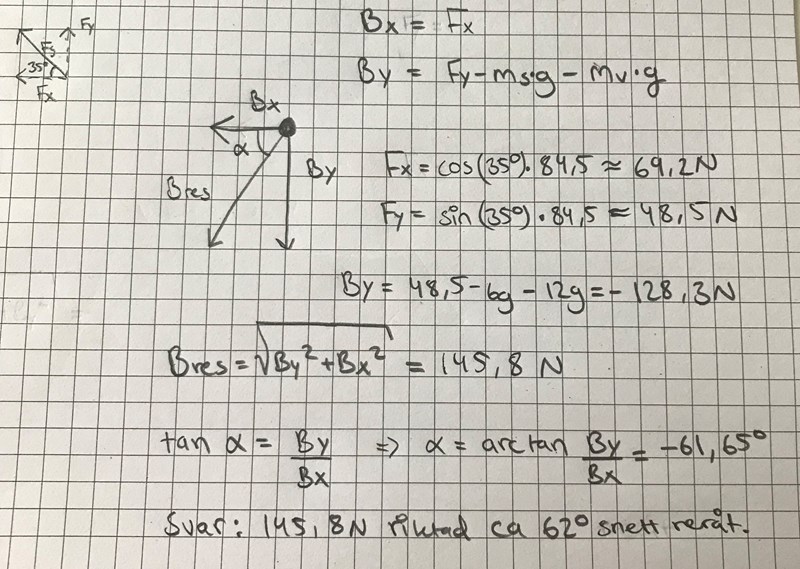 Fy
Fs
35°
Fx
Bx = Fx
By = Fy - ms·g - mv·g
Bx
α
By
Bres
Fx = cos(35°)·84,5 ≈ 69,2N
Fy = sin(35°)·84,5 ≈ 48,5N
By = 48,5 - 6g - 12g = -128,3N
Bres = √By² + Bx² = 145,8 N
tan α = By/Bx ⇒ α = arctan By/Bx = -61,65°
Svar: 145,8N riktad ca 62° snett neråt.